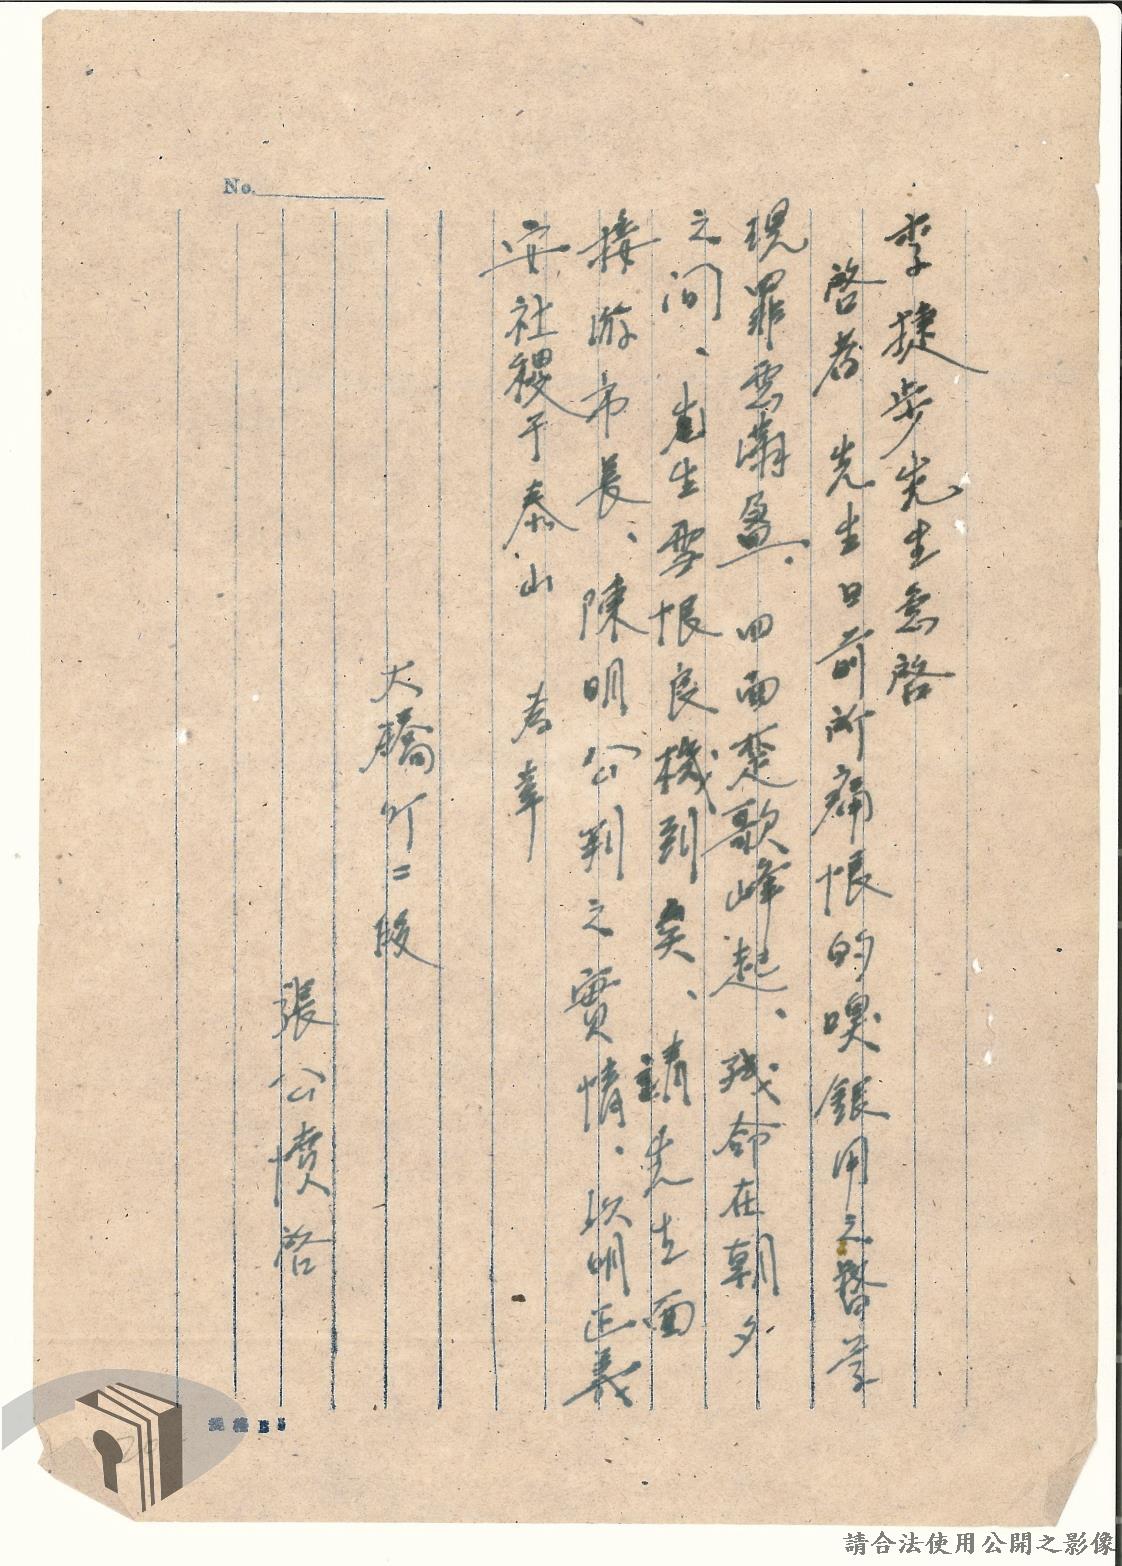 No.
李捷步先生急啓
啓者 先生日前所痛恨的嗅銀用之督学
現罪惡滿盈、四面楚歌峰起、残命在朝夕
之间、先生雪恨良機到矣、請先生面
接游市長、陳明公判之實情、以明正義
安社稷于泰山 為幸
大橋町二段
張公憤啓
規格B5
請合法使用公開之影像